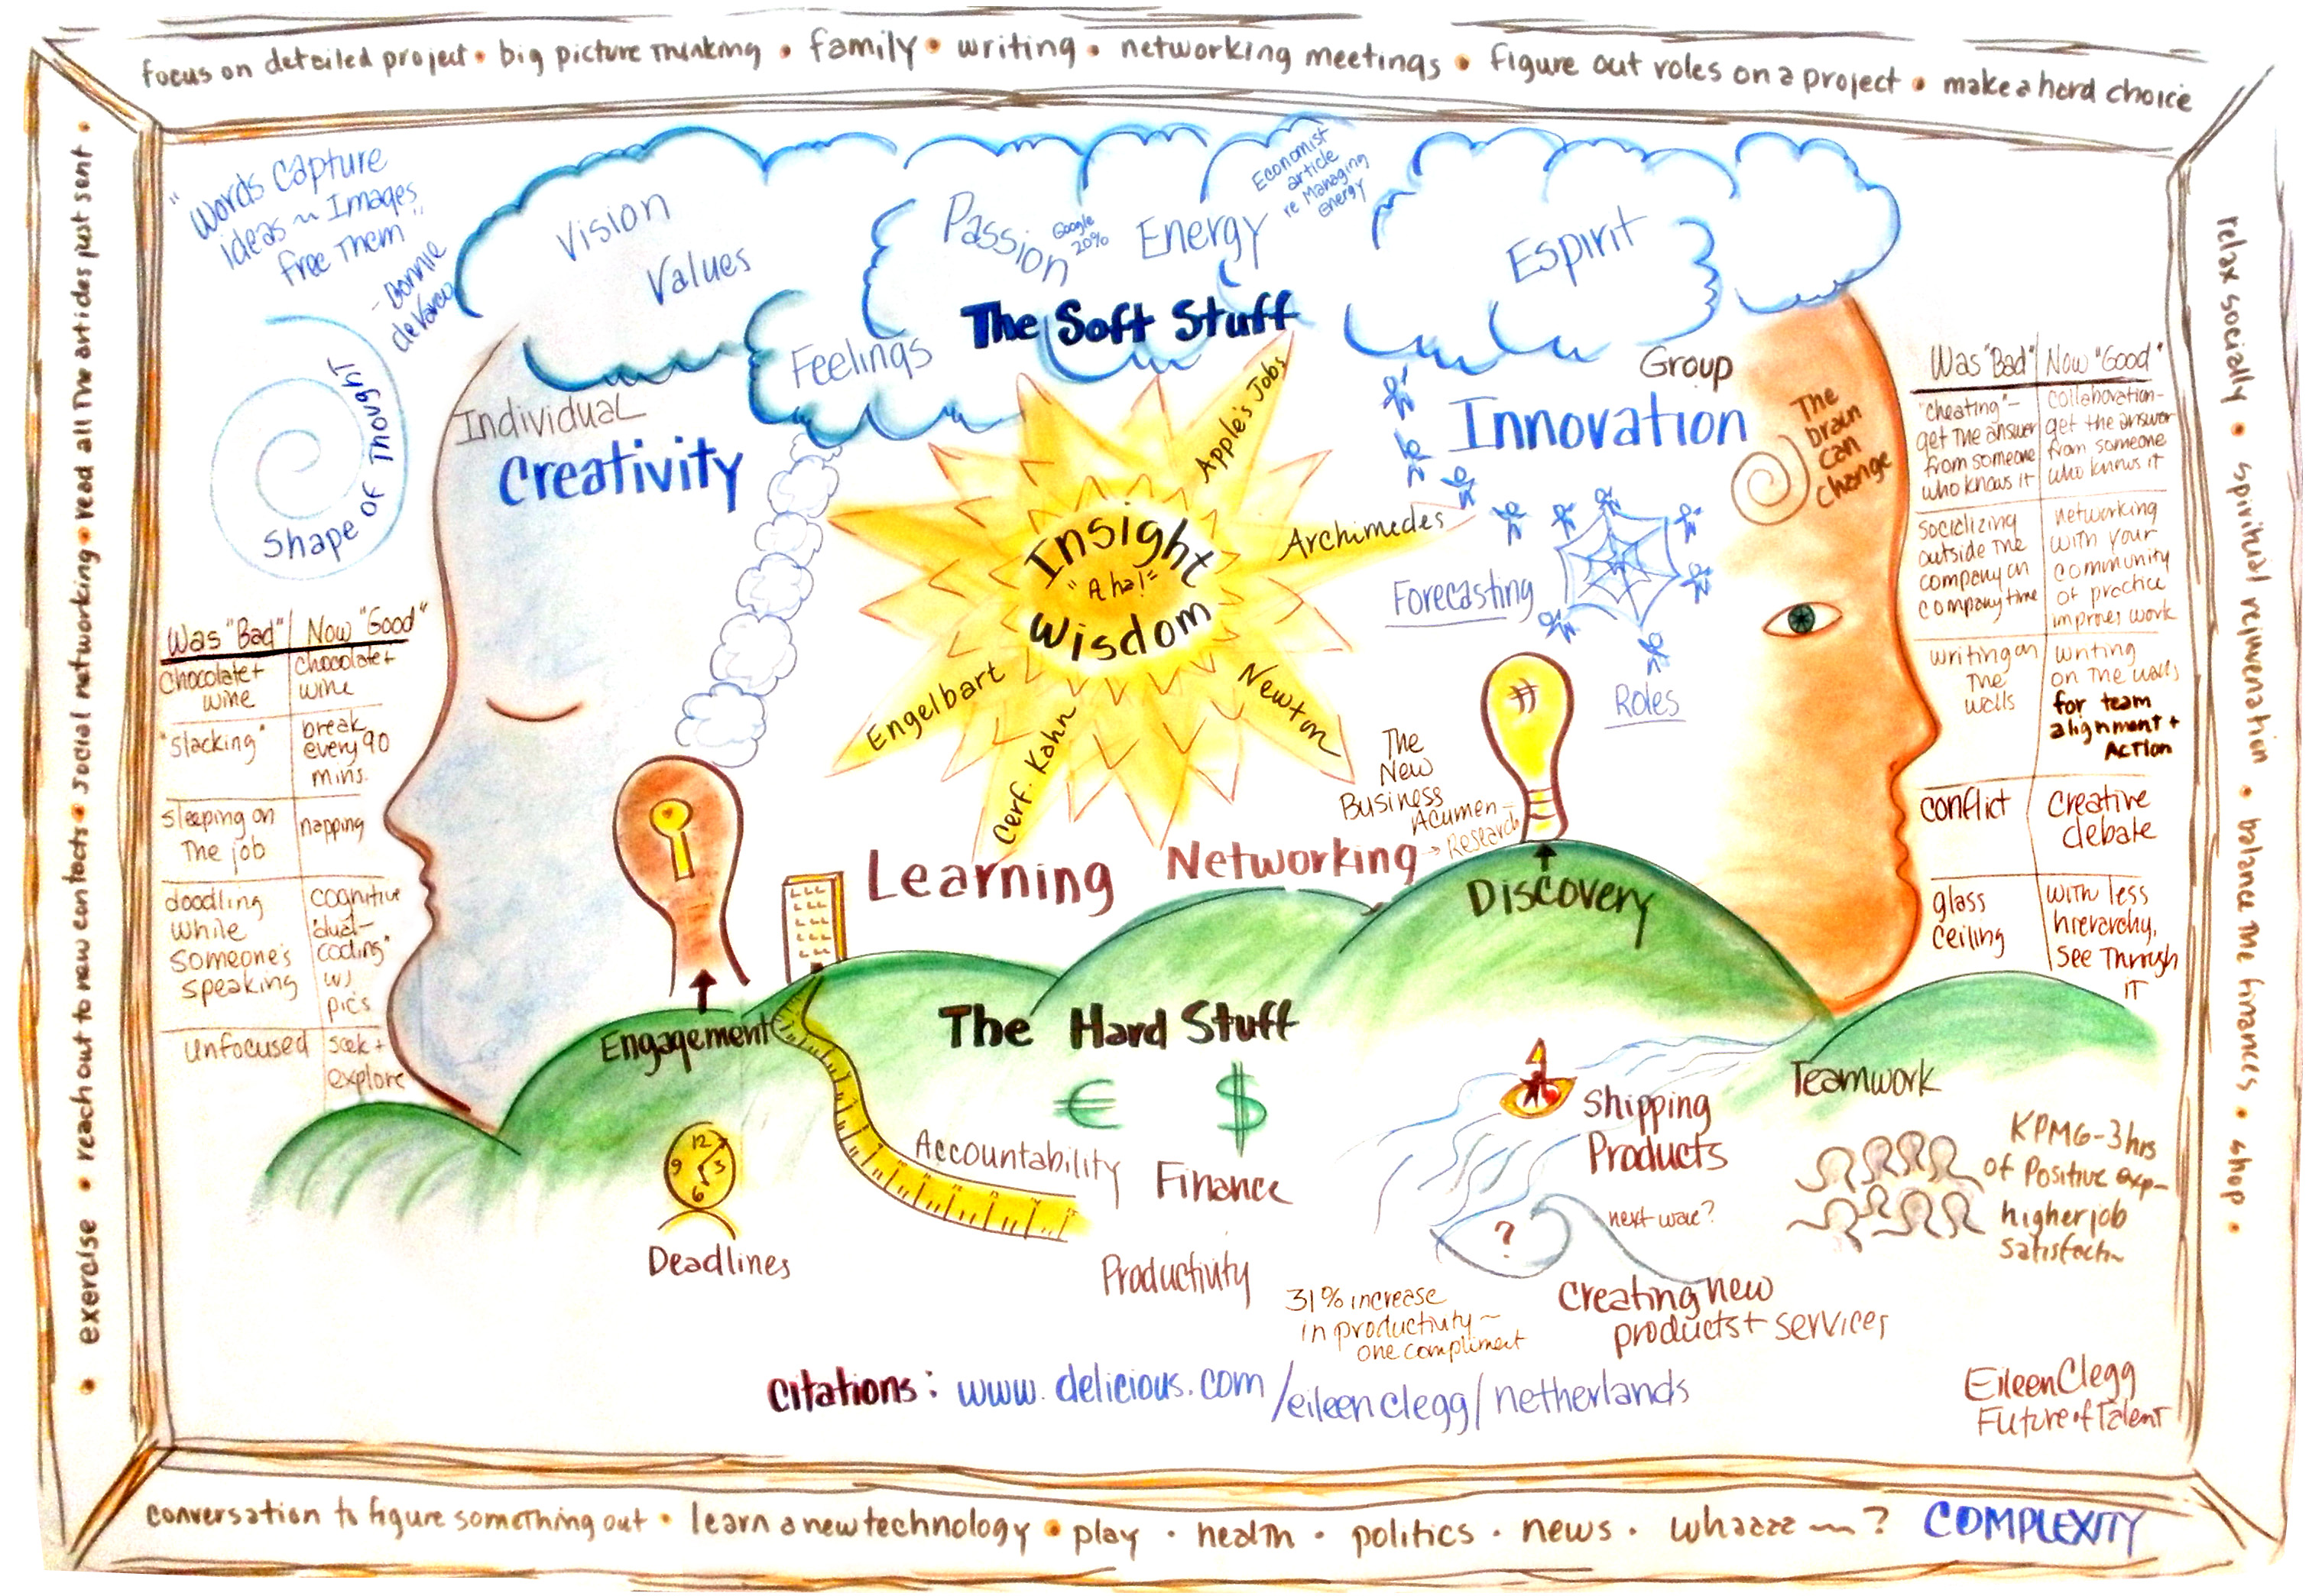 focus on detailed project • big picture Thinking • family • writing • networking meetings • figure out roles on a project • make a hard choice
• exercise • reach out to new contacts • social networking • read all The articles just sent •
relax socially • spiritual rejuvenation • balance The finances • shop •
"Words Capture
ideas ~ Images
free Them"
- Bonnie
deVarco
Shape of Thought
Vision
Values
Feelings
Passion
Google
20%
Energy
Economist
article
re Managing
energy
Espirit
The Soft Stuff
Individual
Creativity
Group
Innovation
The
brain
can
change
Insight
"Aha!"
Wisdom
Apple's Jobs
Archimedes
Newton
Cerf. Kahn
Engelbart
Forecasting
Roles
Was "Bad" | Now "Good"
Chocolate + wine | Chocolate + wine
"slacking" | break every 90 mins.
sleeping on The job | napping
doodling while someone's speaking | cognitive "dual-coding" w/ pics
Unfocused | seek + explore
Was "Bad" | Now "Good"
"cheating" - get The answer from someone who knows it | Collaboration - get the answer from someone who knows it
socializing outside The company on company time | networking with your community of practice improves work
writing on The walls | writing on The walls for team alignment + ACTION
conflict | Creative debate
glass ceiling | with less hierarchy, see Through IT
The
New
Business
Acumen -
Research
Learning
Networking
Discovery
Engagement
The Hard Stuff
€ $
12
3
6
9
Deadlines
Accountability
Finance
Productivity
31% increase
in productivity ~
one compliment
Shipping
Products
?
next wave?
Creating new
products + services
Teamwork
KPMG - 3 hrs
of Positive exp -
higher job
Citations: www.delicious.com/eileenclegg/netherlands
Eileen Clegg
Future of Talent
conversation to figure something out • learn a new technology • play • health • politics • news • ? COMPLEXITY